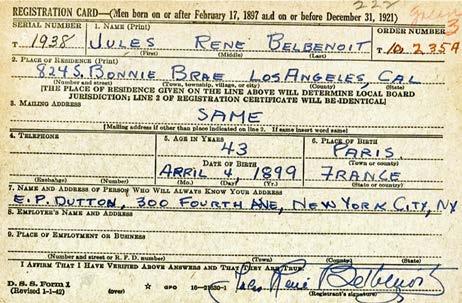 REGISTRATION CARD—(Men born on or after February 17, 1897 and on or before December 31, 1921)
SERIAL NUMBER
1. NAME (Print)
ORDER NUMBER
T 1938
JULES RENE BELBENOIT
T 10,235A
(First) (Middle) (Last)
2. PLACE OF RESIDENCE (Print)
824 S. BONNIE BRAE LOS ANGELES, CAL
(Number and street) (Town, township, village, or city) (County) (State)
[THE PLACE OF RESIDENCE GIVEN ON THE LINE ABOVE WILL DETERMINE LOCAL BOARD
JURISDICTION; LINE 2 OF REGISTRATION CERTIFICATE WILL BE IDENTICAL]
3. MAILING ADDRESS
SAME
[Mailing address if other than place indicated on line 2. If same insert word same]
4. TELEPHONE
5. AGE IN YEARS
6. PLACE OF BIRTH
43
PARIS
DATE OF BIRTH
(Town or county)
APRIL 4, 1899
FRANCE
(Exchange) (Number)
(Mo.) (Day) (Yr.)
(State or country)
7. NAME AND ADDRESS OF PERSON WHO WILL ALWAYS KNOW YOUR ADDRESS
E.P. DUTTON, 300 FOURTH AVE, NEW YORK CITY, NY
8. EMPLOYER'S NAME AND ADDRESS
9. PLACE OF EMPLOYMENT OR BUSINESS
(Number and street or R. F. D. number) (Town) (County) (State)
I AFFIRM THAT I HAVE VERIFIED ABOVE ANSWERS AND THAT THEY ARE TRUE.
D. S. S. Form 1
(Revised 1-1-42) (over) ☆ GPO 16-21630-1
Jules René Belbenoit
(Registrant's signature)